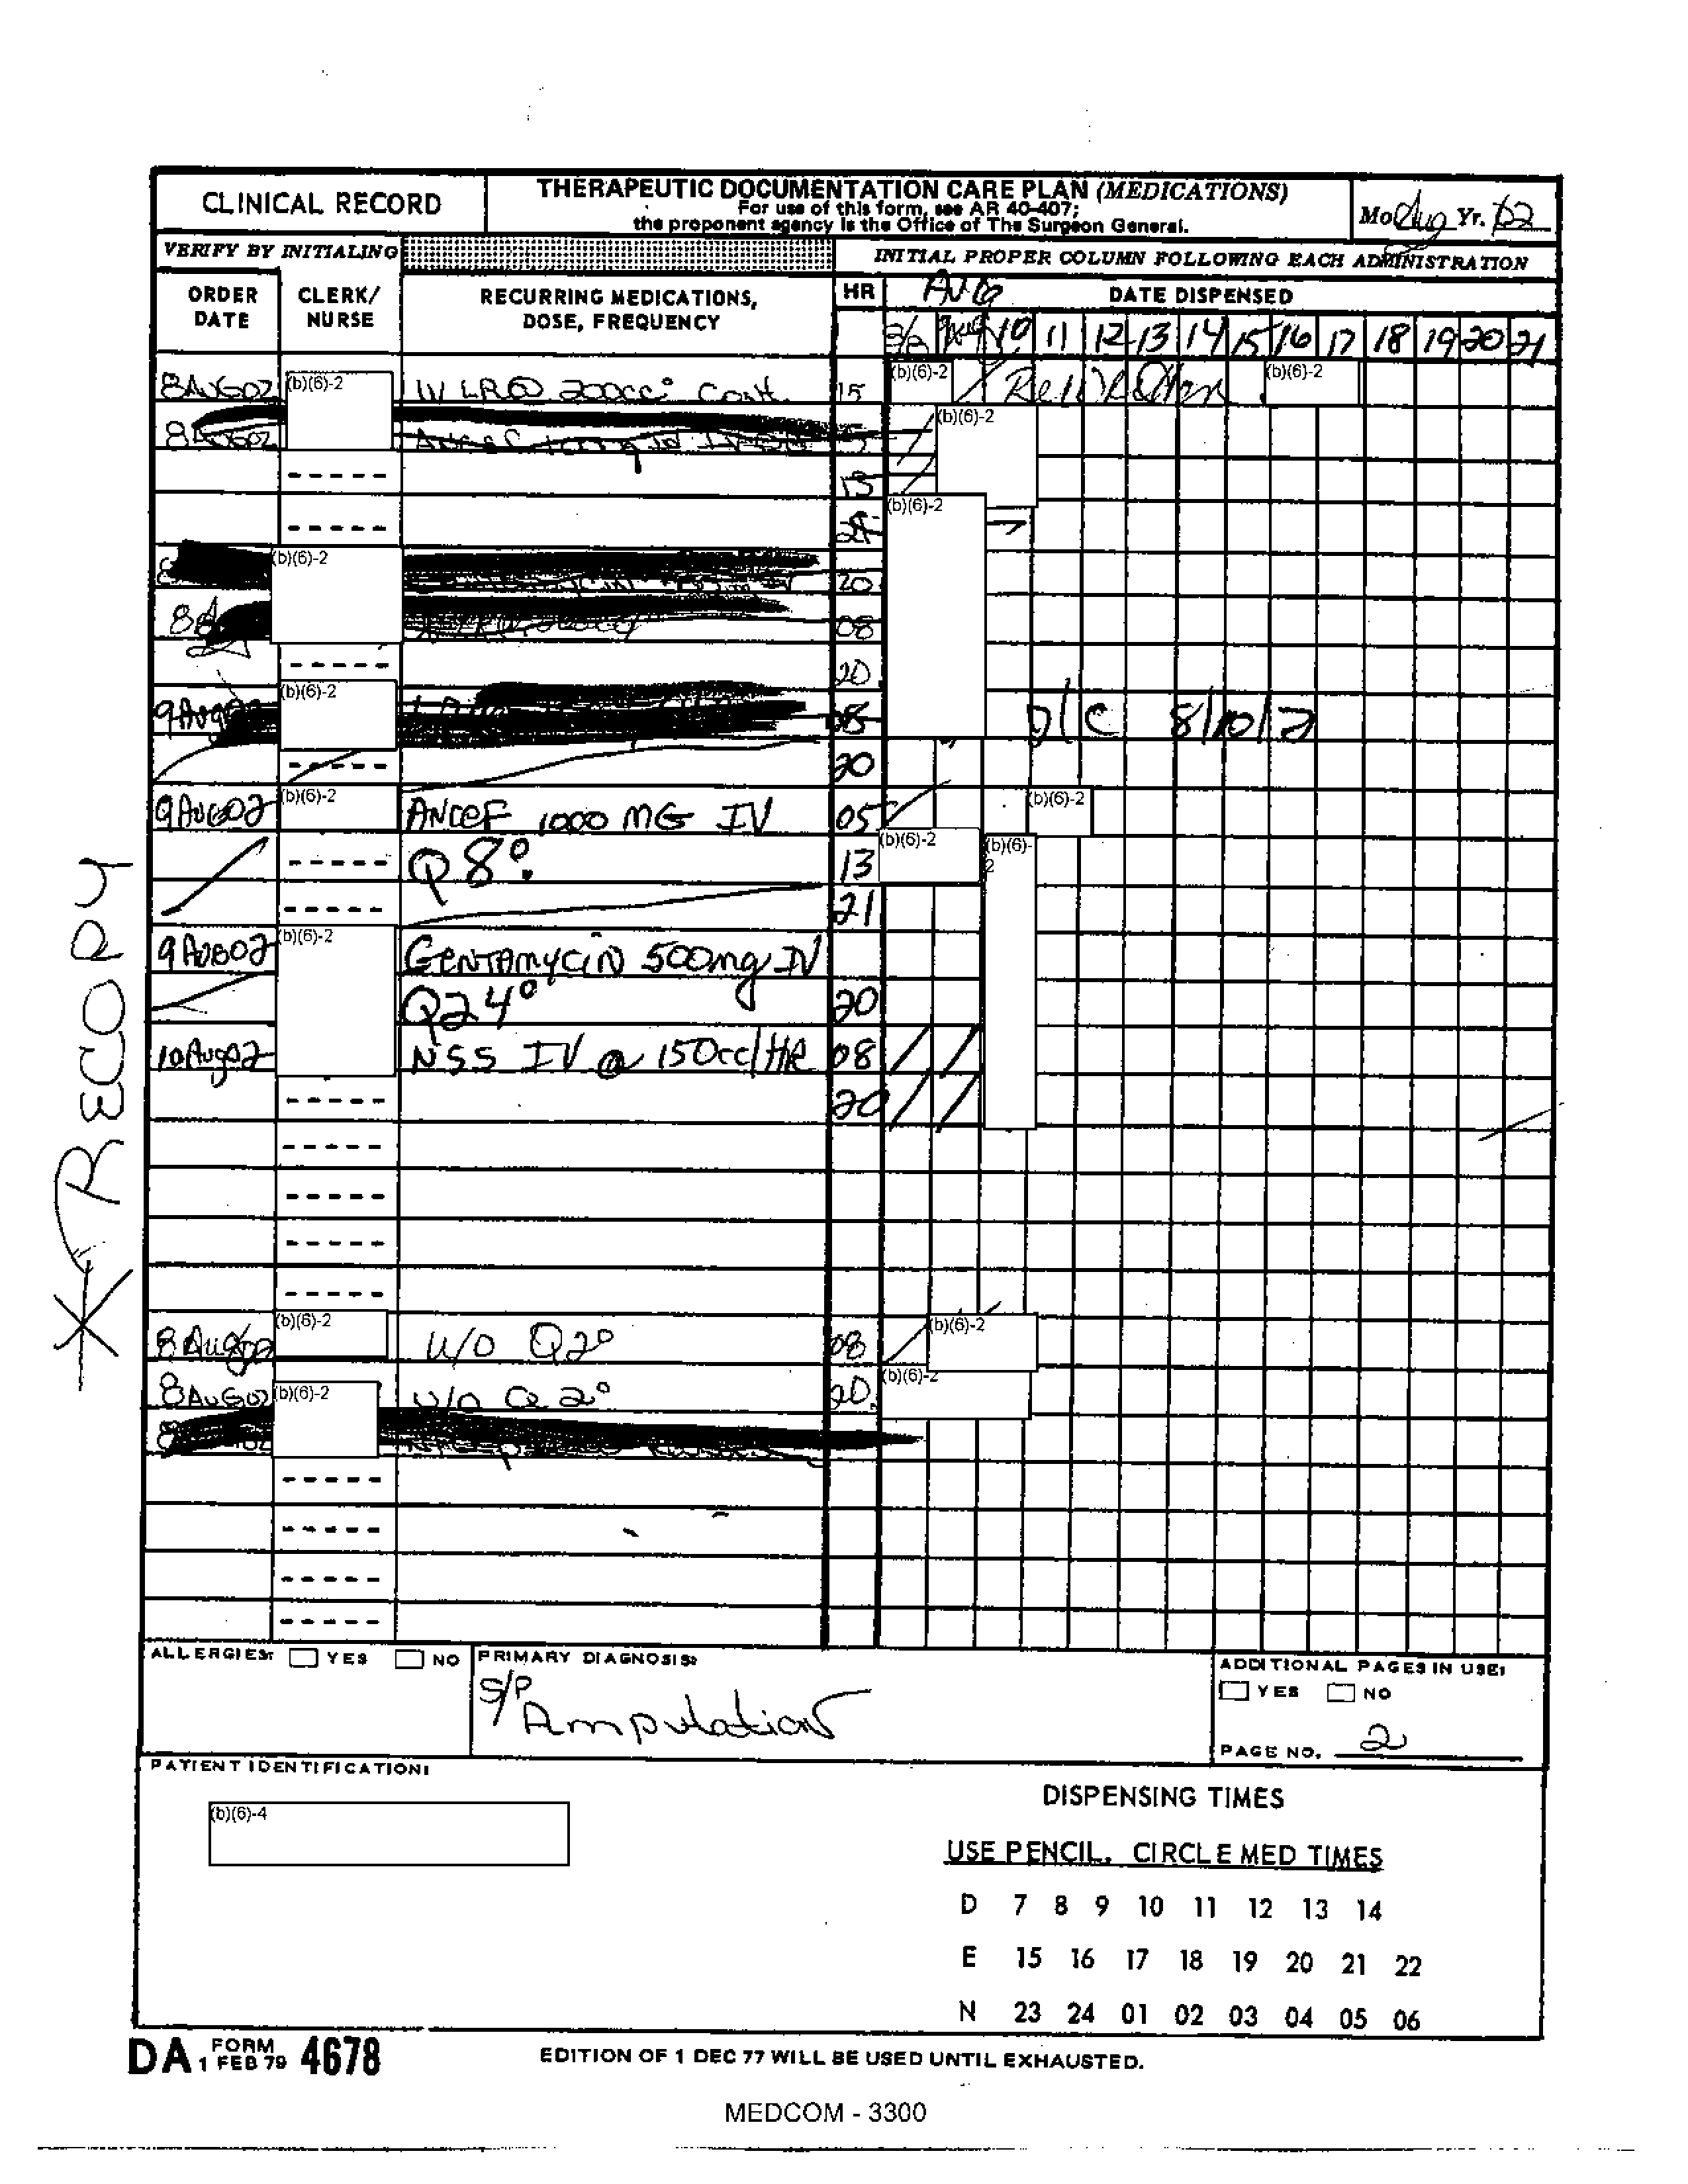 CLINICAL RECORD
THERAPEUTIC DOCUMENTATION CARE PLAN (MEDICATIONS)
For use of this form, see AR 40-407;
the proponent agency is the Office of The Surgeon General.
Mo. Aug Yr. 02
VERIFY BY INITIALING
INITIAL PROPER COLUMN FOLLOWING EACH ADMINISTRATION
ORDER DATE
CLERK/ NURSE
RECURRING MEDICATIONS, DOSE, FREQUENCY
HR
AUG
DATE DISPENSED
10 11 12 13 14 15 16 17 18 19 20 21
8AUG02 (b)(6)-2 IV LR @ 200cc° Cont. 15 (b)(6)-2 (b)(6)-2
8AUG02 (b)(6)-2
13
(b)(6)-2
21
(b)(6)-2
20
08
20
9Aug02 (b)(6)-2 08 D/C 8/10/2
20
9AUG02 (b)(6)-2 ANCEF 1000 MG IV 05 (b)(6)-2
Q8°. 13 (b)(6)-2 (b)(6)-2
21
9AUG02 (b)(6)-2 GENTAMYCIN 500mg IV
Q24° 20
10Aug02 NSS IV @ 150cc/HR 08
20
* RECOPY
8Aug02 (b)(6)-2 U/O Q2° 08 (b)(6)-2
8AUG02 (b)(6)-2 U/O Q2° 20 (b)(6)-2
ALLERGIES: YES NO
PRIMARY DIAGNOSIS:
S/P Amputation
ADDITIONAL PAGES IN USE:
YES NO
PAGE NO. 2
PATIENT IDENTIFICATION:
(b)(6)-4
DISPENSING TIMES
USE PENCIL. CIRCLE MED TIMES
D 7 8 9 10 11 12 13 14
E 15 16 17 18 19 20 21 22
N 23 24 01 02 03 04 05 06
DA FORM 1 FEB 79 4678
EDITION OF 1 DEC 77 WILL BE USED UNTIL EXHAUSTED.
MEDCOM - 3300